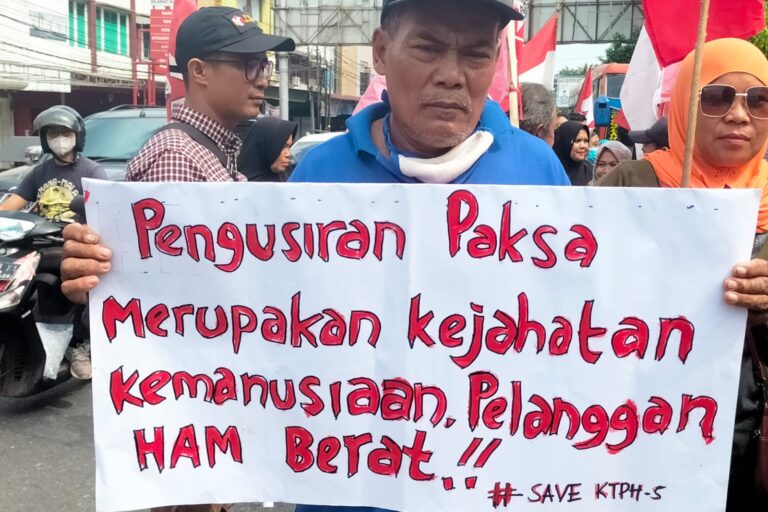 Pengusiran Paksa
Merupakan kejahatan
Kemanusiaan, Pelanggan
HAM Berat..!!
# SAVE KTPH-5